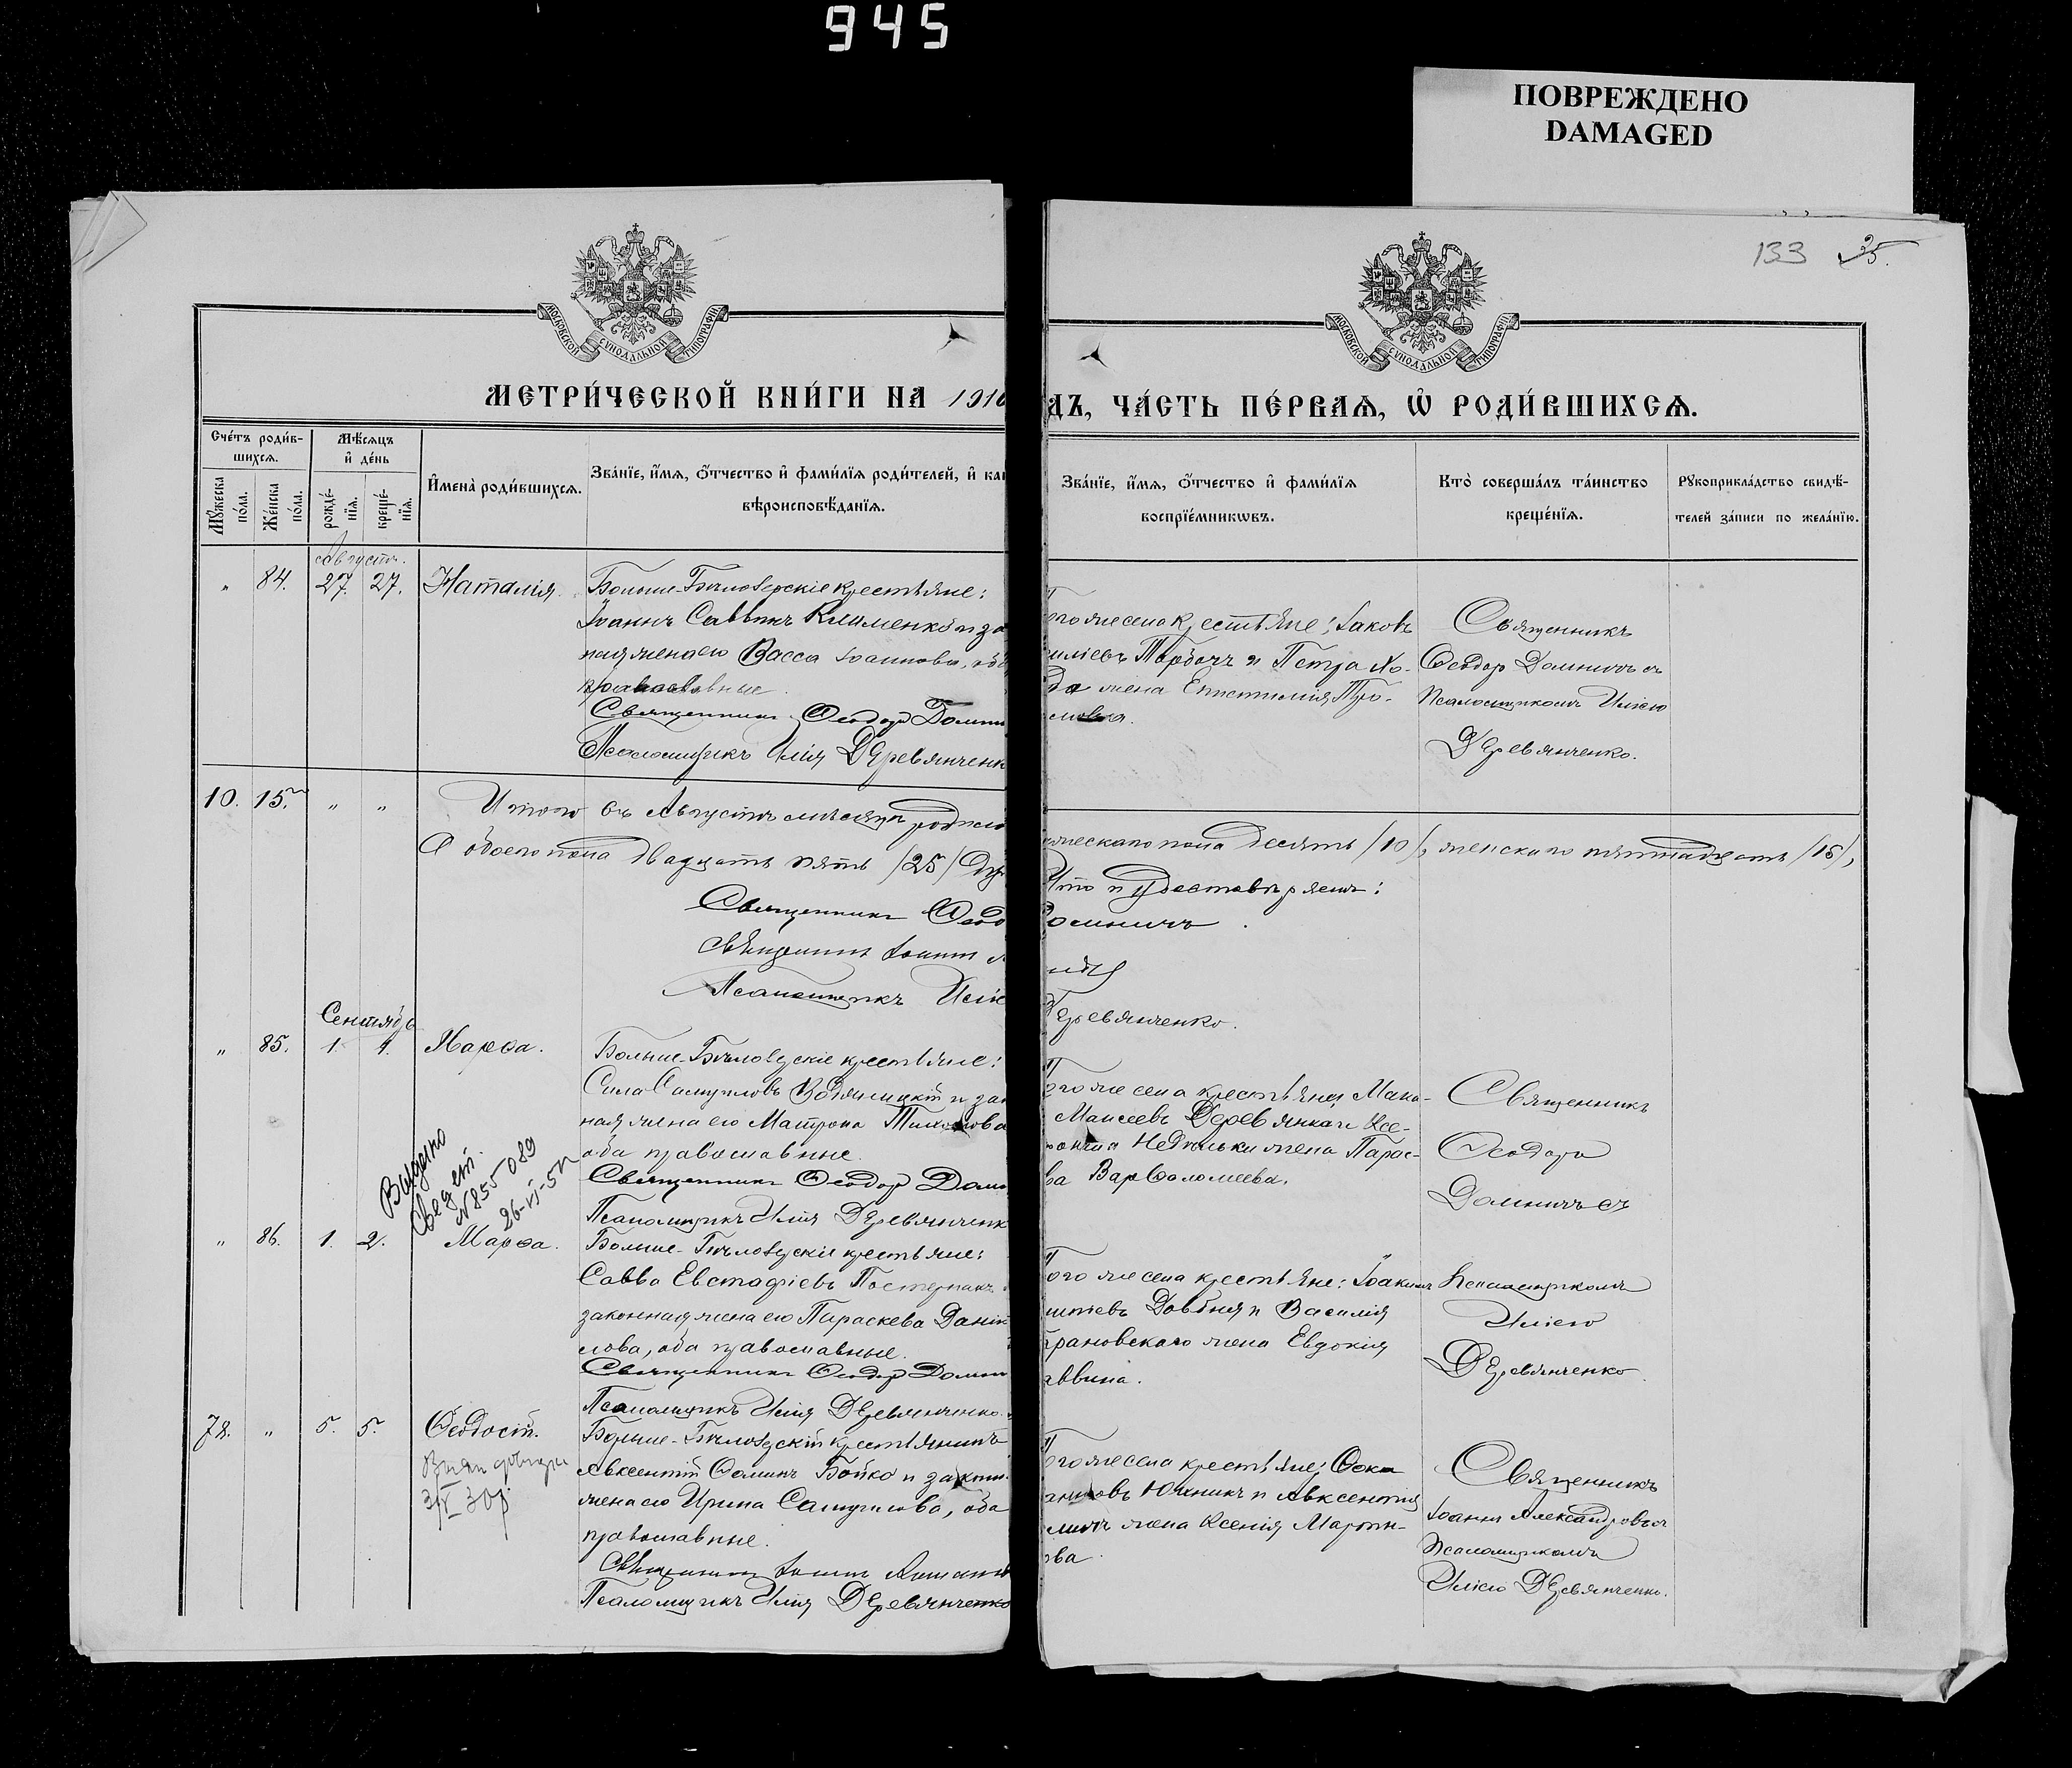 945
ПОВРЕЖДЕНО
DAMAGED
133 35.
МОСКОВСКОЙ СѴНОДАЛЬНОЙ ТИПОГРАФІИ
МОСКОВСКОЙ СѴНОДАЛЬНОЙ ТИПОГРАФІИ
МЕТРИ́ЧЕСКОЙ КНИ́ГИ НА 1910
ДЪ, ЧА́СТЬ ПЕ́РВАѦ, Ѡ҆ РОДИ́ВШИХСѦ.
Сче́тъ роди́в-
шихсѧ.
Мꙋ́жеска по́ла.
Же́нска по́ла.
Мѣ́сѧцъ
и҆ де́нь
рожде́-
нїѧ.
креще́-
нїѧ.
И҆мена̀ роди́вшихсѧ.
Зва́нїе, и҆́мѧ, ѻ҆́тчество и҆ фами́лїѧ роди́телей, и҆ ка
вѣроисповѣ́данїѧ.
Зва́нїе, и҆́мѧ, ѻ҆́тчество и҆ фами́лїѧ
воспрїе́мникѡвъ.
Кто̀ соверша́лъ та́инство
креще́нїѧ.
Рꙋкоприкла́дство свидѣ́-
телей за́писи по жела́нїю.
Августъ.
" 84. 27. 27. Наталія.
Больше-Бѣлозерскіе крестьяне:
Іоаннъ Саввинъ Клименко и за
ная жена его Васса Іоаннова, об
православные.
Священникъ Ѳеодор Домни
Псаломщикъ Илія Деревянченк
ого же села крестьяне: Іаковъ
иліевъ Горбачъ и Петра Хо-
да жена Епистимія Тро-
имовна.
Священникъ
Ѳеодор Домничъ съ
Псаломщикомъ Иліею
Деревянченко.
10. 15. " "
Итого въ Августѣ мѣсяцѣ родило
А обоего пола двадцать пять /25/ душ
Священникъ Ѳеодо
Священникъ Іоаннъ
Псаломщикъ Илія
жескаго пола десять /10/, женскаго пятнадцать /15/,
Что и удостовѣряемъ:
Домничъ.
Деревянченко.
Сентябрь
" 85. 1. 1. Марѳа.
Больше-Бѣлозерскіе крестьяне:
Сила Самуиловъ Водяницкій и зак
ная жена его Матрона Тихонова
оба православные.
Священникъ Ѳеодор Домн
Псаломщикъ Илія Деревянченк
ого же села крестьяне: Мака-
Моисеевъ Деревянка и Ксе-
Недѣльки жена Парас-
ва Варѳоломеева.
Священникъ
Ѳеодоръ
Домничъ съ
Выдано
Свидет.
№ 855089
26-VI-51
" 86. 1. 2. Марѳа.
Больше-Бѣлозерскіе крестьяне:
Савва Евстафіевъ Постернакъ
законная жена его Параскева Даніи
лова, оба православные.
Священникъ Ѳеодор Домни
Псаломщикъ Илія Деревянченко.
ого же села крестьяне: Іоакимъ
Довбня и Василія
рановскаго жена Евдокія
аввина.
Псаломщикомъ
Иліею
Деревянченко.
78. " 5. 5. Ѳеодосій.
Больше-Бѣлозерскій крестьянинъ
Авксентій Ѳоминъ Бойко и законн.
жена его Ирина Самуилова, оба
православные.
Священникъ Іоаннъ Александ
Псаломщикъ Илія Деревянченко
ого же села крестьяне: Ѳока
Юшникъ и Авксентія
жена Ксенія Марти-
ова.
Священникъ
Іоаннъ Александровъ съ
Псаломщикомъ
Иліею Деревянченко.